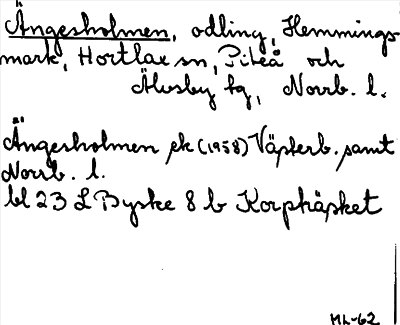 Ängesholmen, odling, Hemmings-
mark, Hortlax sn, Piteå och
Älvsby tg, Norrb. l.
Ängesholmen ek (1958) Västerb. samt
Norrb. l.
bl 23 L Byske 8 b Korsträsket
ML-62